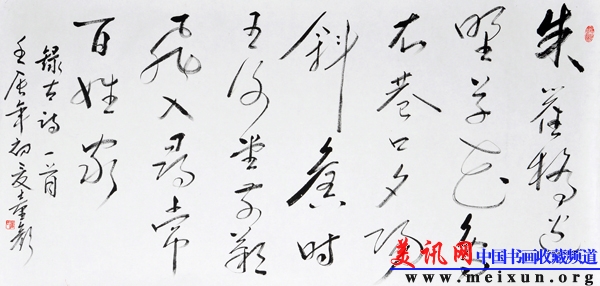 朱雀橋邊
野草花烏
衣巷口夕陽
斜舊時
王謝堂前燕
飛入尋常
百姓家
錄古詩一首
壬辰年初夏
美讯网 中国书画收藏频道
www.meixun.org